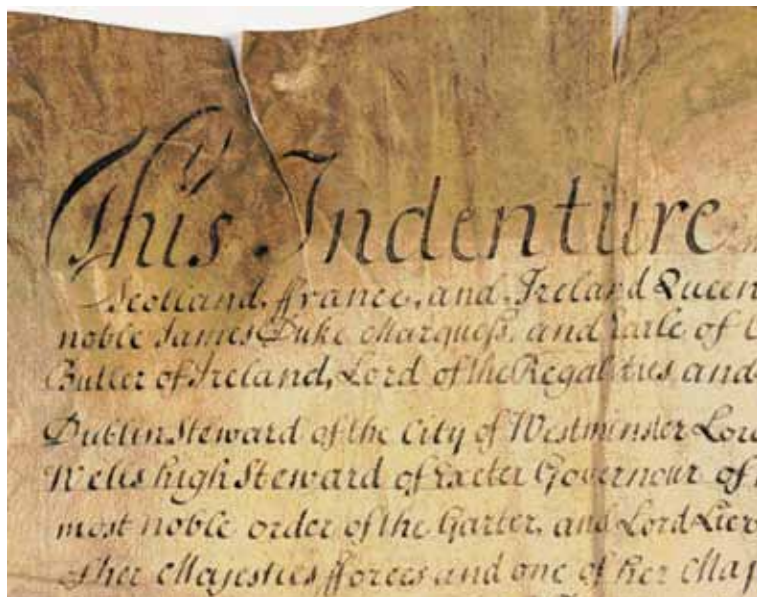 This Indenture
Scotland, ffrance, and Ireland Queen
noble James Duke Marquess, and Earle of
Butler of Ireland, Lord of the Regalities, and
Dublin Steward of the City of Westminster Lord
Wells high Steward of Exeter Governour of
most noble order of the Garter, and Lord Lie
of her Majesties fforces and one of her Maj